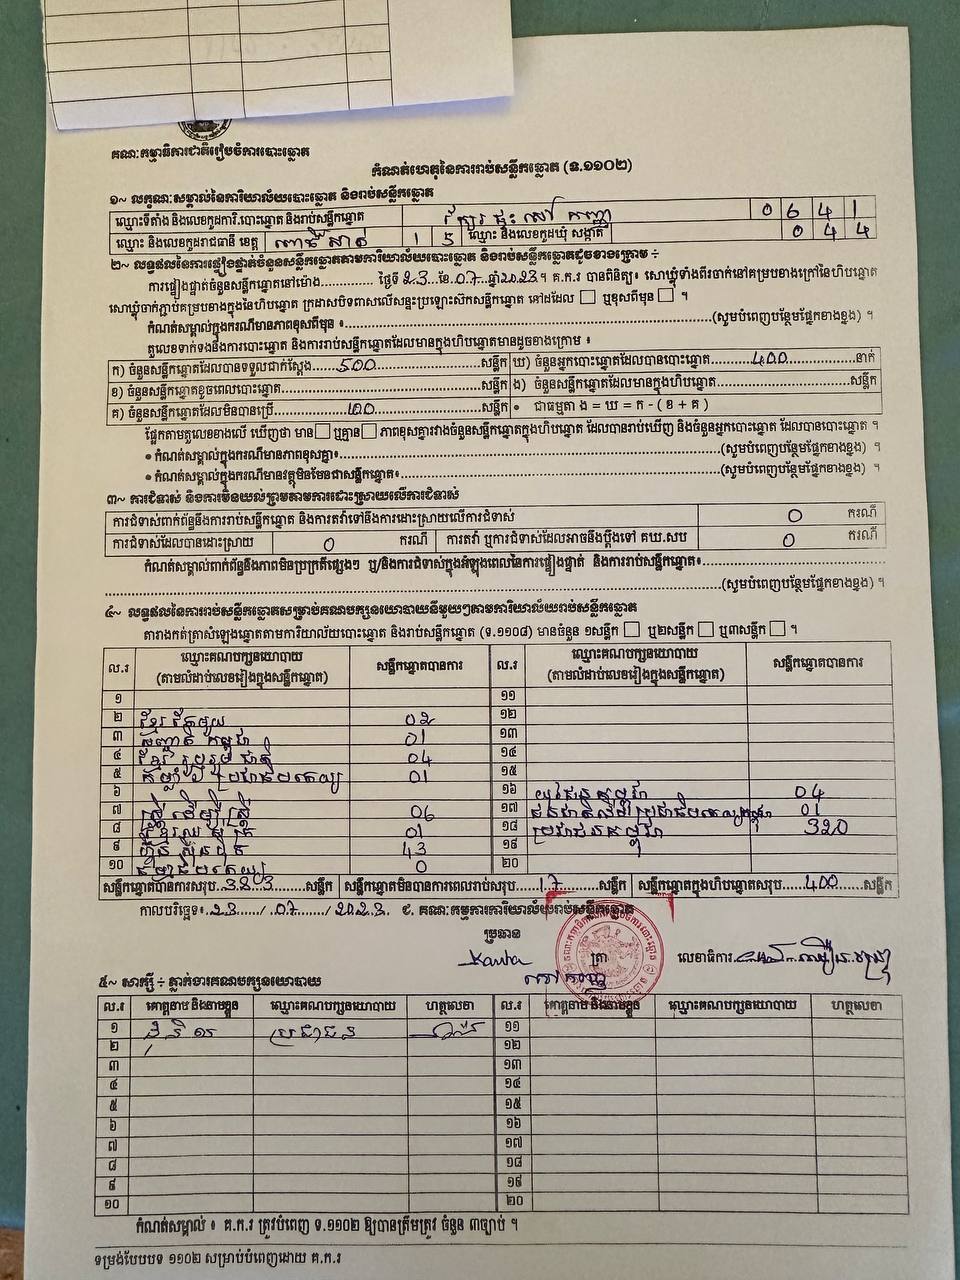 គណៈកម្មាធិការជាតិរៀបចំការបោះឆ្នោត
កំណត់ហេតុនៃការរាប់សន្លឹកឆ្នោត (ទ.១១០២)
១~ លក្ខណៈសម្គាល់នៃការិយាល័យបោះឆ្នោត និងរាប់សន្លឹកឆ្នោត
ឈ្មោះទីតាំង និងលេខកូដការិ.បោះឆ្នោត និងរាប់សន្លឹកឆ្នោត 0 6 4 1
ឈ្មោះ និងលេខកូដរាជធានី ខេត្ត ពោធិ៍សាត់ 1 5 ឈ្មោះ និងលេខកូដឃុំ សង្កាត់ 0 4 4
២~ លទ្ធផលនៃការផ្ទៀងផ្ទាត់ចំនួនសន្លឹកឆ្នោតតាមការិយាល័យបោះឆ្នោត និងរាប់សន្លឹកឆ្នោតដូចខាងក្រោម ÷
ការផ្ទៀងផ្ទាត់ចំនួនសន្លឹកឆ្នោតនៅម៉ោង.............. ថ្ងៃទី 23 ខែ 07 ឆ្នាំ 2023 ។ គ.ក.រ បានពិនិត្យ៖ សោឃ្លុំទាំងពីរចាក់នៅគម្របខាងក្រៅនៃហិបឆ្នោត
សោឃ្លុំចាក់ភ្ជាប់គម្របខាងក្នុងនៃហិបឆ្នោត ក្រដាសបិទពាសលើសន្ទះប្រឡោះសិកសន្លឹកឆ្នោត នៅដដែល ☐ ឬខុសពីមុន ☐ ។
កំណត់សម្គាល់ក្នុងករណីមានភាពខុសពីមុន ៖..............(សូមបំពេញបន្ថែមផ្នែកខាងខ្នង) ។
តួលេខទាក់ទងនឹងការបោះឆ្នោត និងការរាប់សន្លឹកឆ្នោតដែលមានក្នុងហិបឆ្នោតមានដូចខាងក្រោម ៖
ក) ចំនួនសន្លឹកឆ្នោតដែលបានទទួលជាក់ស្តែង 500 សន្លឹក ឃ) ចំនួនអ្នកបោះឆ្នោតដែលបានបោះឆ្នោត 400 នាក់
ខ) ចំនួនសន្លឹកឆ្នោតខូចពេលបោះឆ្នោត..............សន្លឹក ង) ចំនួនសន្លឹកឆ្នោតដែលមានក្នុងហិបឆ្នោត..............សន្លឹក
គ) ចំនួនសន្លឹកឆ្នោតដែលមិនបានប្រើ 100 សន្លឹក • ជាធម្មតា ង = ឃ = ក - ( ខ + គ )
ផ្អែកតាមតួលេខខាងលើ ឃើញថា មាន ☐ ឬគ្មាន ☐ ភាពខុសគ្នារវាងចំនួនសន្លឹកឆ្នោតក្នុងហិបឆ្នោត ដែលបានរាប់ឃើញ និងចំនួនអ្នកបោះឆ្នោត ដែលបានបោះឆ្នោត ។
• កំណត់សម្គាល់ក្នុងករណីមានភាពខុសគ្នា៖..............(សូមបំពេញបន្ថែមផ្នែកខាងខ្នង) ។
• កំណត់សម្គាល់ក្នុងករណីមានវត្ថុមិនមែនជាសន្លឹកឆ្នោត៖..............(សូមបំពេញបន្ថែមផ្នែកខាងខ្នង) ។
៣~ ការជំទាស់ និងការមិនយល់ព្រមតាមការដោះស្រាយលើការជំទាស់
ការជំទាស់ពាក់ព័ន្ធនឹងការរាប់សន្លឹកឆ្នោត និងការតវ៉ាទៅនឹងការដោះស្រាយលើការជំទាស់ 0 ករណី
ការជំទាស់ដែលបានដោះស្រាយ 0 ករណី ការតវ៉ា ឬការជំទាស់ដែលអាចនឹងប្តឹងទៅ គឃ.សប 0 ករណី
កំណត់សម្គាល់ពាក់ព័ន្ធនឹងភាពមិនប្រក្រតីផ្សេងៗ ឬ/និងការជំទាស់ក្នុងអំឡុងពេលនៃការផ្ទៀងផ្ទាត់ និងការរាប់សន្លឹកឆ្នោត៖..............
..............(សូមបំពេញបន្ថែមផ្នែកខាងខ្នង) ។
៤~ លទ្ធផលនៃការរាប់សន្លឹកឆ្នោតសម្រាប់គណបក្សនយោបាយនីមួយៗតាមការិយាល័យរាប់សន្លឹកឆ្នោត
តារាងកត់ត្រាសំឡេងឆ្នោតតាមការិយាល័យបោះឆ្នោត និងរាប់សន្លឹកឆ្នោត (ទ.១១០៨) មានចំនួន ១សន្លឹក ☐ ឬ២សន្លឹក ☐ ឬ៣សន្លឹក ☐ ។
ល.រ ឈ្មោះគណបក្សនយោបាយ (តាមលំដាប់លេខរៀងក្នុងសន្លឹកឆ្នោត) សន្លឹកឆ្នោតបានការ ល.រ ឈ្មោះគណបក្សនយោបាយ (តាមលំដាប់លេខរៀងក្នុងសន្លឹកឆ្នោត) សន្លឹកឆ្នោតបានការ
១ ១១
២ ខ្មែរតែមួយ 02 ១២
៣ 01 ១៣
៤ ខ្មែររួបរួមជាតិ 04 ១៤
៥ កម្លាំងប្រជាធិបតេយ្យ 01 ១៥
៦ ១៦ 04
៧ ស្ត្រីដើម្បីស្ត្រី 06 ១៧ 01
៨ 01 ១៨ ប្រជាជនកម្ពុជា 320
៩ ហ្វ៊ុនស៊ិនប៉ិច 43 ១៩
១០ 0 ២០
សន្លឹកឆ្នោតបានការសរុប 383 សន្លឹក សន្លឹកឆ្នោតមិនបានការពេលរាប់សរុប 17 សន្លឹក សន្លឹកឆ្នោតក្នុងហិបឆ្នោតសរុប 400 សន្លឹក
កាលបរិច្ឆេទ៖ 23 / 07 / 2023 ៩. គណៈកម្មការការិយាល័យរាប់សន្លឹកឆ្នោត
ប្រធាន
ត្រា លេខាធិការ
៥~ សាក្សី ÷ ភ្នាក់ងារគណបក្សនយោបាយ
ល.រ គោត្តនាម និងនាមខ្លួន ឈ្មោះគណបក្សនយោបាយ ហត្ថលេខា ល.រ គោត្តនាម និងនាមខ្លួន ឈ្មោះគណបក្សនយោបាយ ហត្ថលេខា
១ ប្រជាជន ១១
២ ១២
៣ ១៣
៤ ១៤
៥ ១៥
៦ ១៦
៧ ១៧
៨ ១៨
៩ ១៩
១០ ២០
កំណត់សម្គាល់ ៖ គ.ក.រ ត្រូវបំពេញ ទ.១១០២ ឱ្យបានត្រឹមត្រូវ ចំនួន ៣ច្បាប់ ។
ទម្រង់បែបបទ ១១០២ សម្រាប់បំពេញដោយ គ.ក.រ